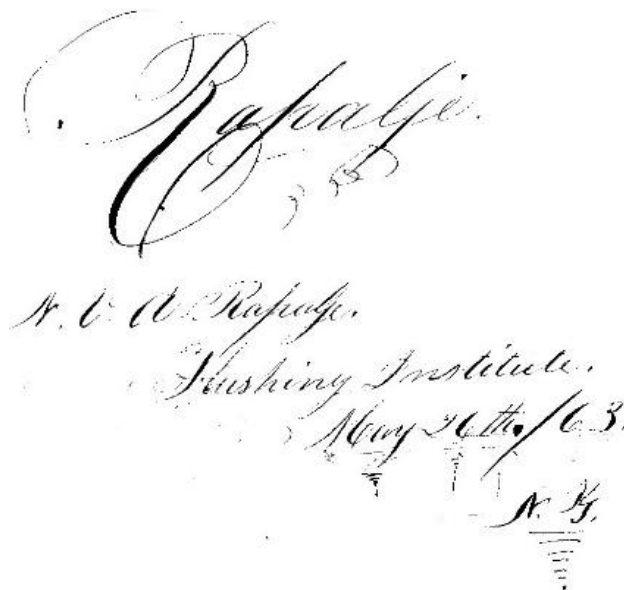 Rapalje.
N. V. A. Rapalje.
Flushing Institute.
May 26th./63.
N. Y.